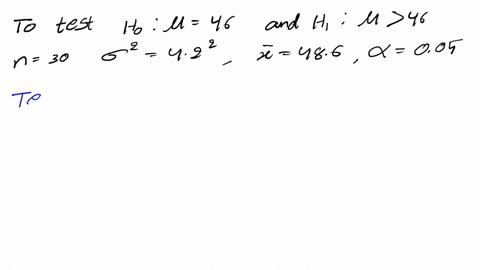 To test H₀ : μ = 46 and H₁ : μ > 46
n = 30 σ² = 4.2² , x̄ = 48.6 , α = 0.05
Te